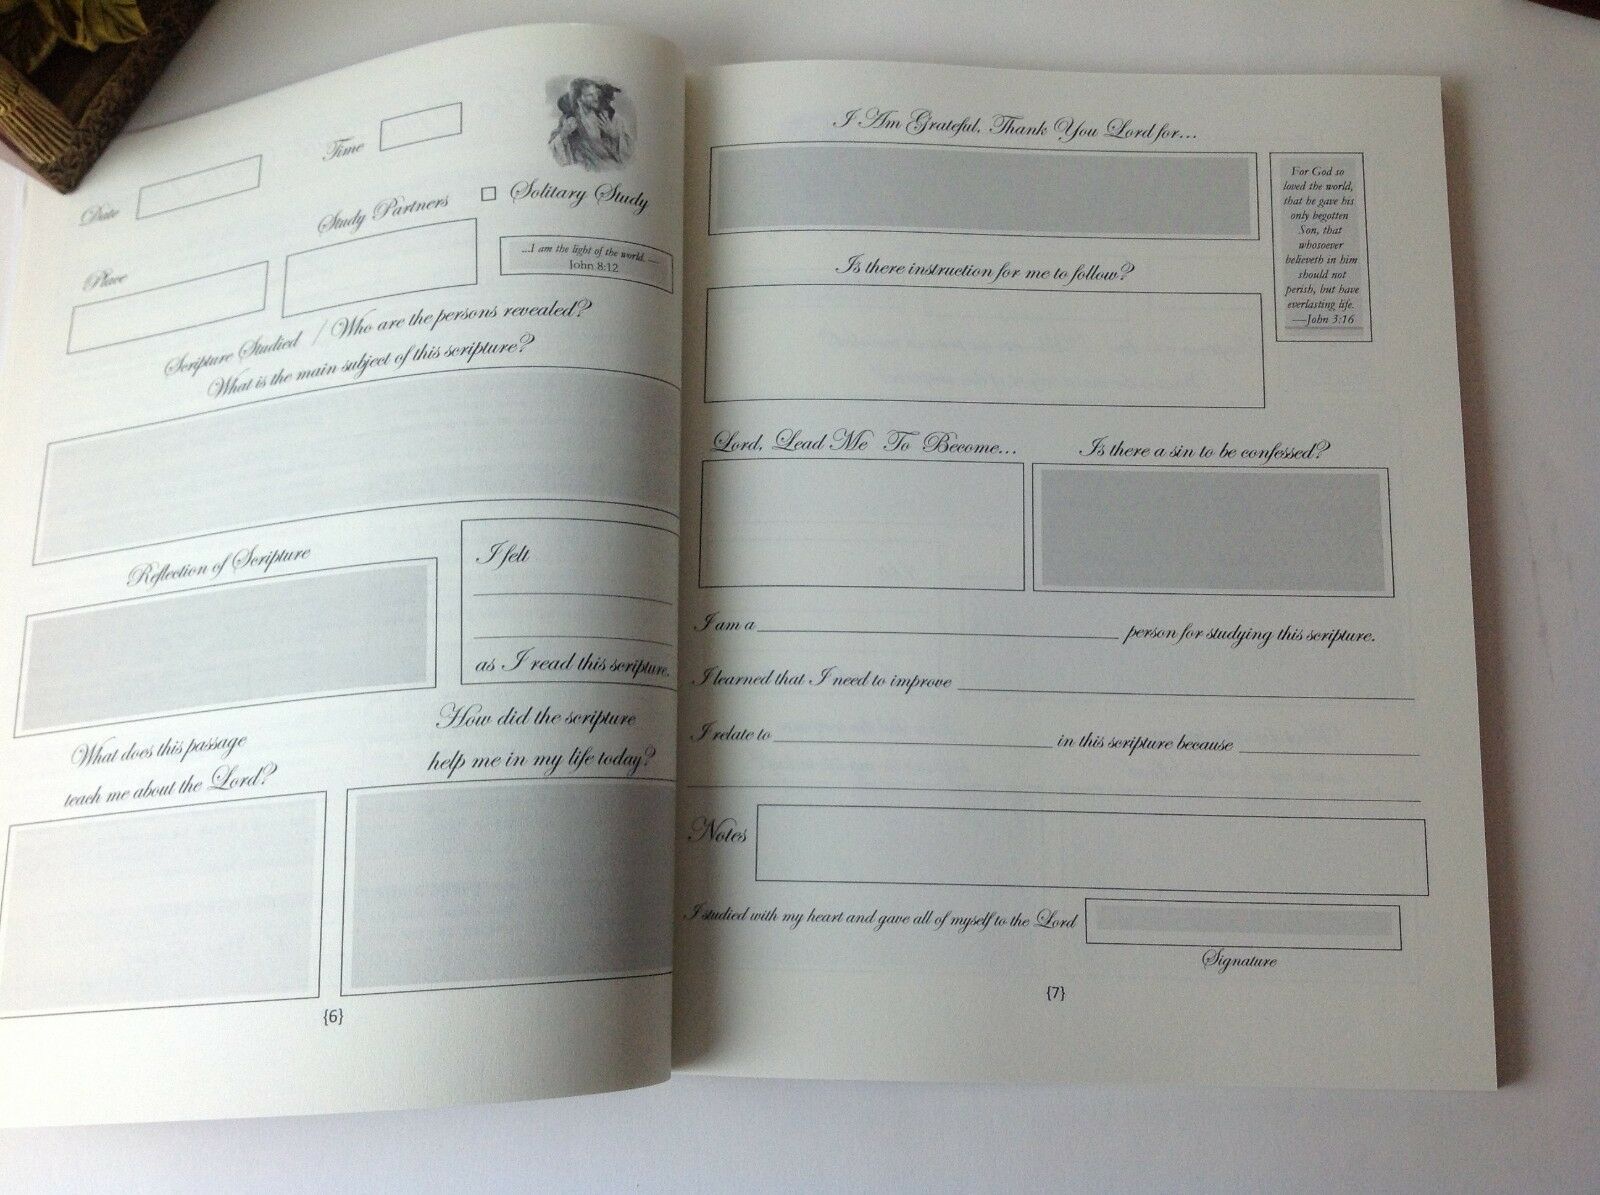 Date
Time
Place
Study Partners
Solitary Study
...I am the light of the world. —
John 8:12
Scripture Studied / Who are the persons revealed?
What is the main subject of this scripture?
Reflection of Scripture
I felt
as I read this scripture.
What does this passage
teach me about the Lord?
How did the scripture
help me in my life today?
{6}
I Am Grateful, Thank You Lord for...
For God so
loved the world,
that he gave his
only begotten
Son, that
whosoever
believeth in him
should not
perish, but have
everlasting life.
—John 3:16
Is there instruction for me to follow?
Lord, Lead Me To Become...
Is there a sin to be confessed?
I am a person for studying this scripture.
I learned that I need to improve
I relate to in this scripture because
Notes
I studied with my heart and gave all of myself to the Lord
Signature
{7}